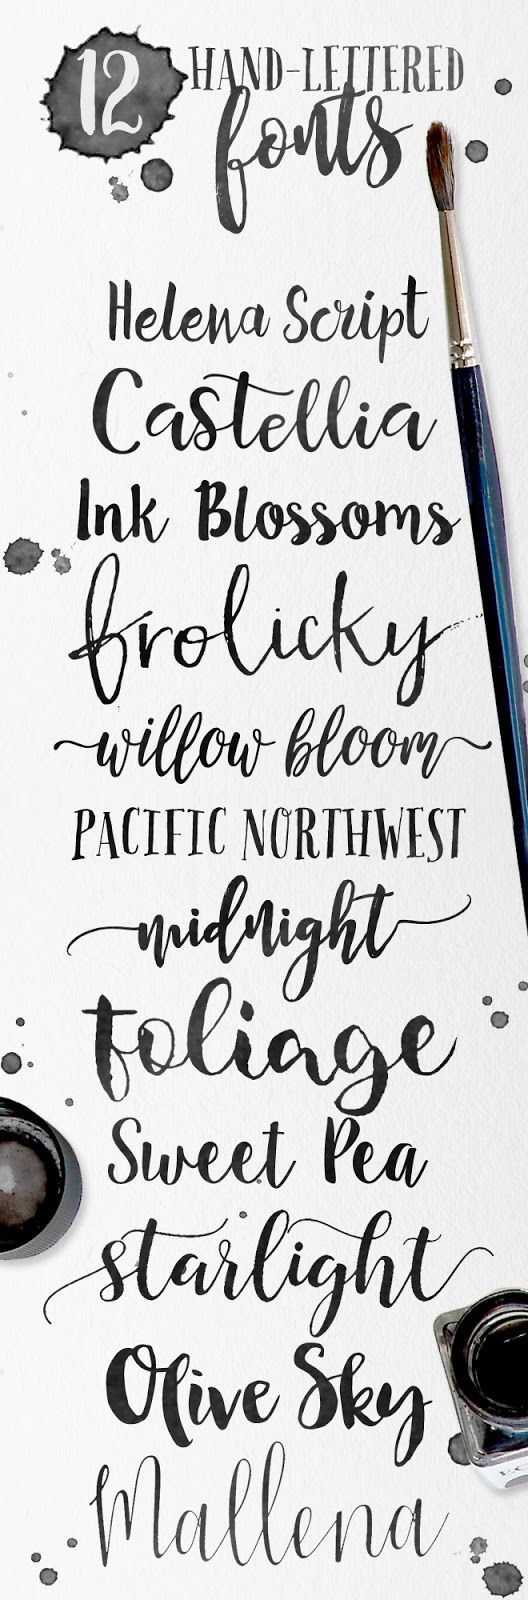 12 HAND-LETTERED
fonts
Helena Script
Castellia
Ink Blossoms
frolicky
willow bloom
PACIFIC NORTHWEST
midnight
foliage
Sweet Pea
starlight
Olive Sky
Mallena